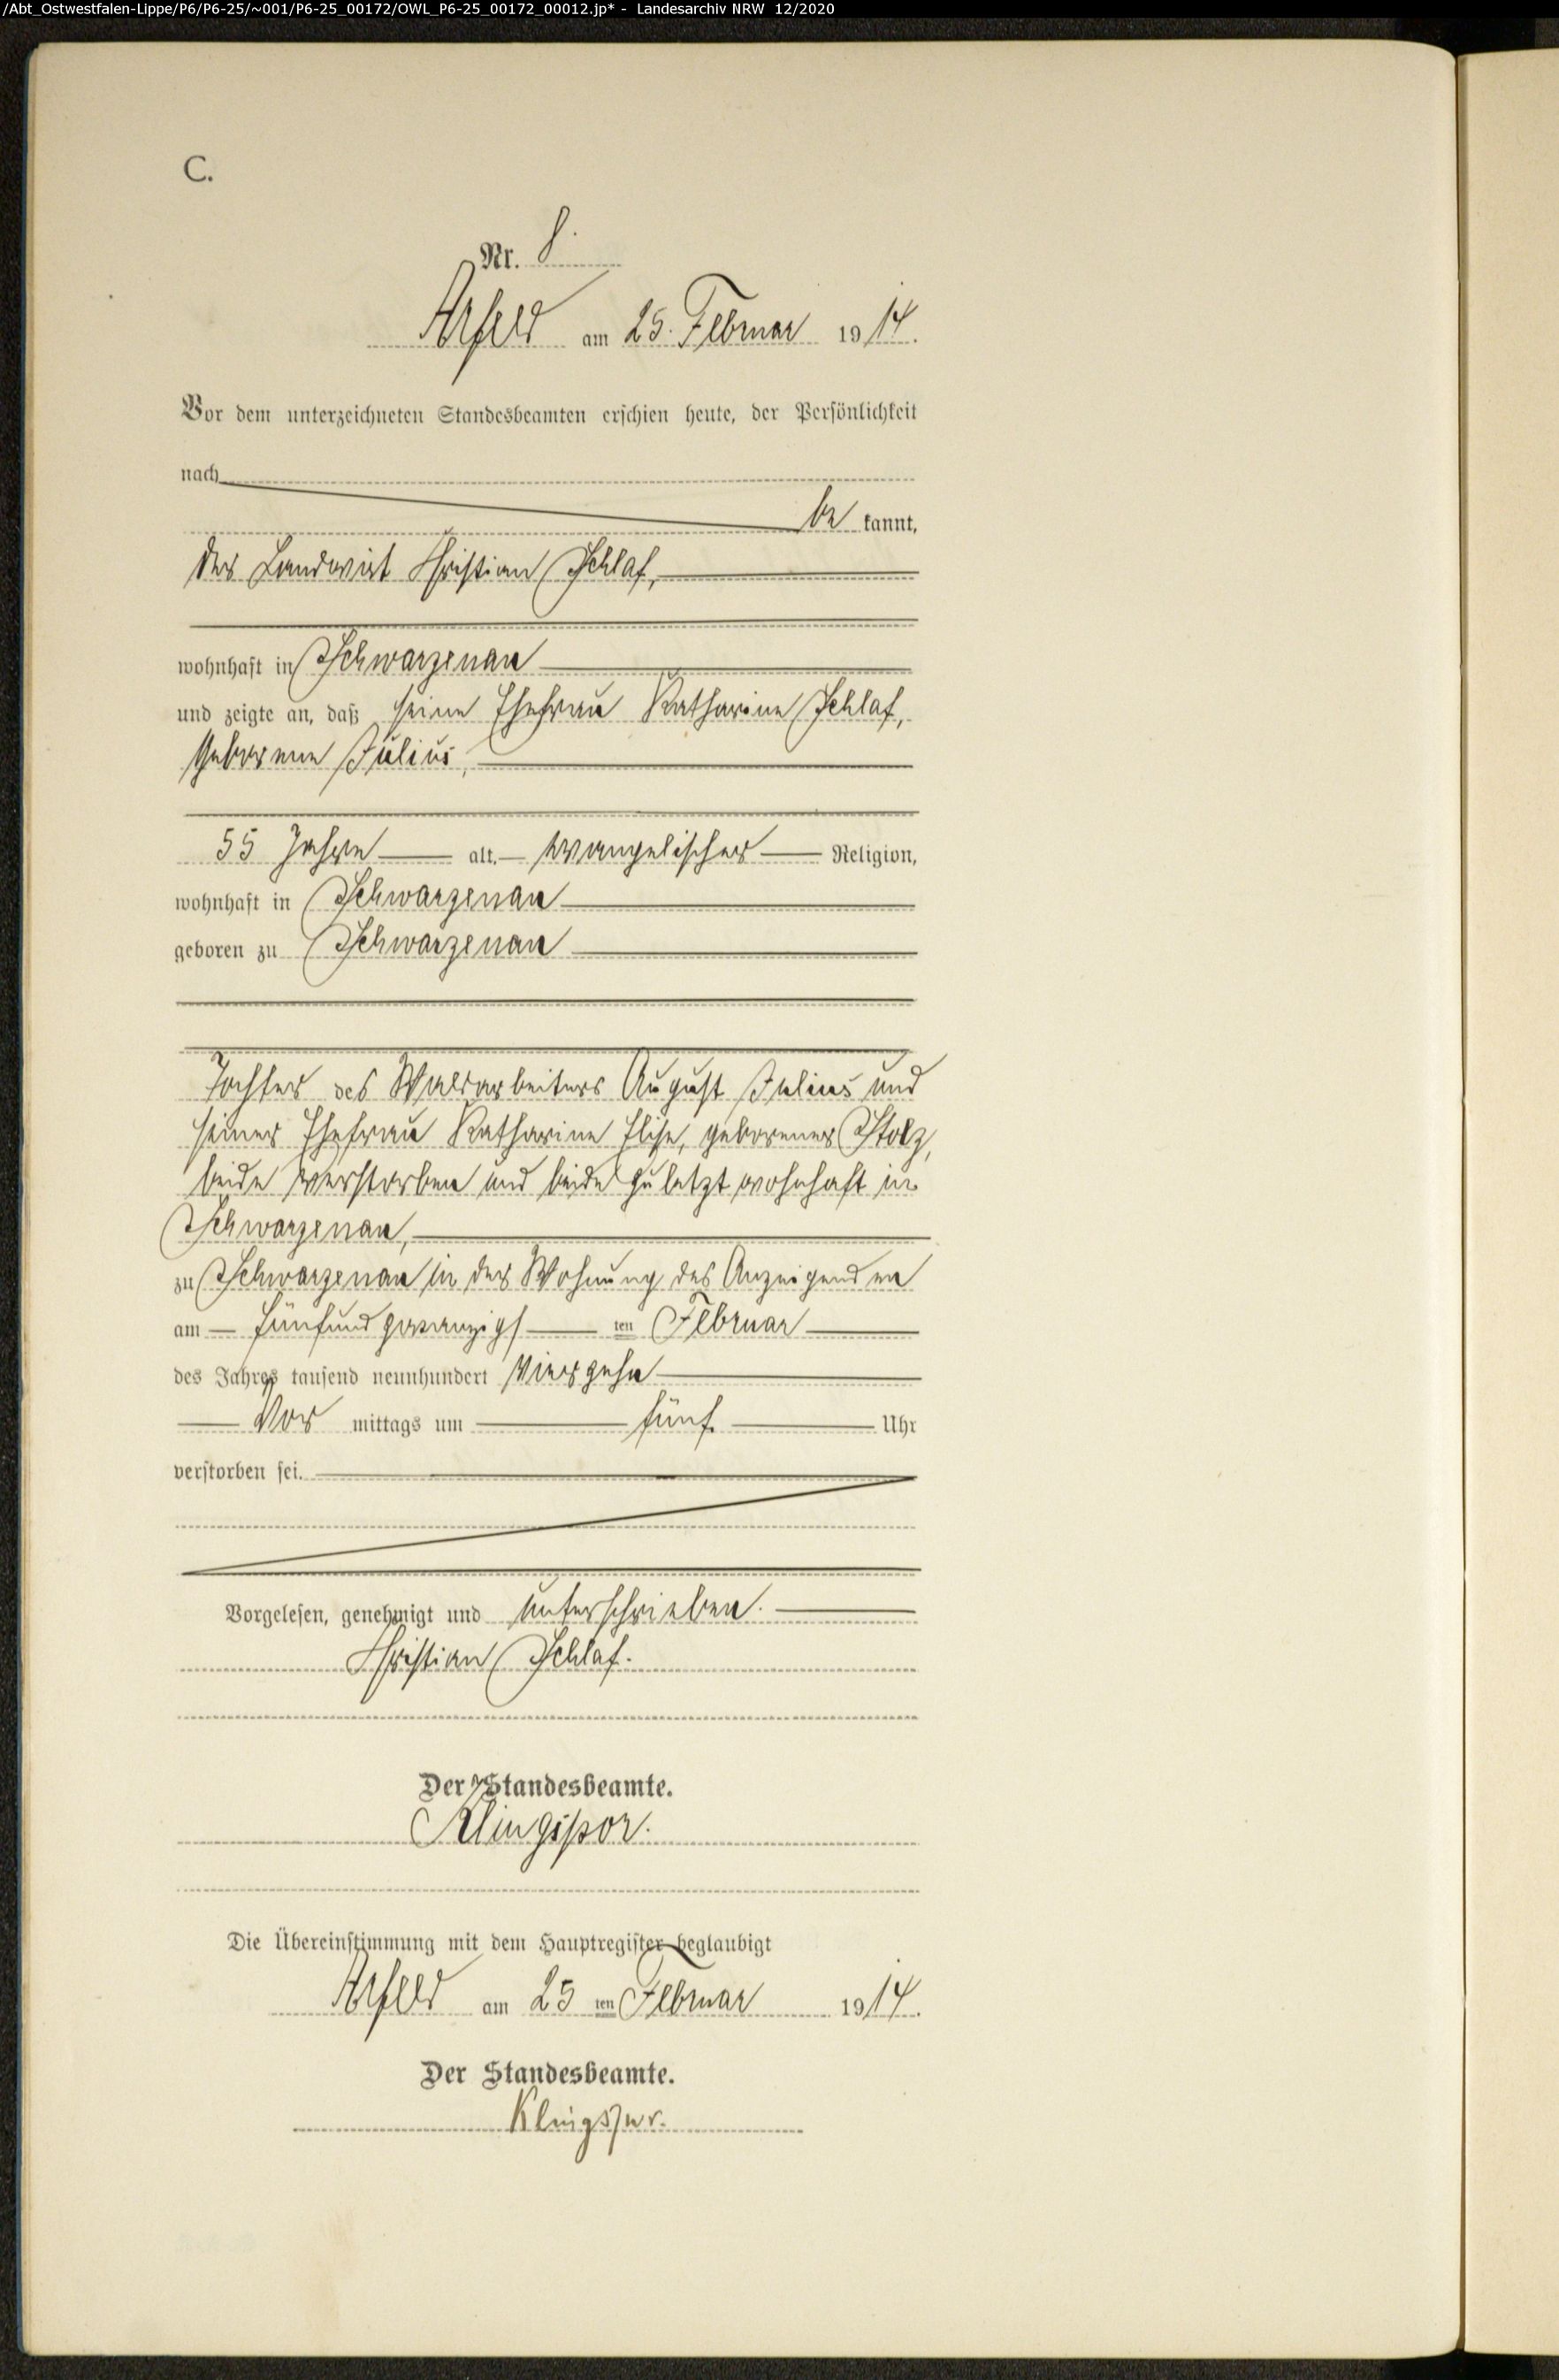 /Abt_Ostwestfalen-Lippe/P6/P6-25/~001/P6-25_00172/OWL_P6-25_00172_00012.jp* - Landesarchiv NRW 12/2020
C.
Nr. 8.
Arfeld am 25. Februar 1914.
Vor dem unterzeichneten Standesbeamten erschien heute, der Persönlichkeit
nach
be kannt,
der Landwirt Christian Schlaf,
wohnhaft in Schwarzenau
und zeigte an, daß seine Ehefrau Katharine Schlaf,
geborene Julius,
55 Jahre alt, evangelischer Religion,
wohnhaft in Schwarzenau
geboren zu Schwarzenau
Tochter des Waldarbeiters August Julius und
seiner Ehefrau Katharine Elise, geborener Stolz,
beide verstorben und beide zuletzt wohnhaft in
Schwarzenau,
zu Schwarzenau in der Wohnung des Anzeigenden
am fünfundzwanzigs ten Februar
des Jahres tausend neunhundert vierzehn
Vor mittags um fünf Uhr
verstorben sei.
Vorgelesen, genehmigt und unterschrieben.
Christian Schlaf.
Der Standesbeamte.
Klingspor.
Die Übereinstimmung mit dem Hauptregister beglaubigt
Arfeld am 25 ten Februar 1914.
Der Standesbeamte.
Klingspor.